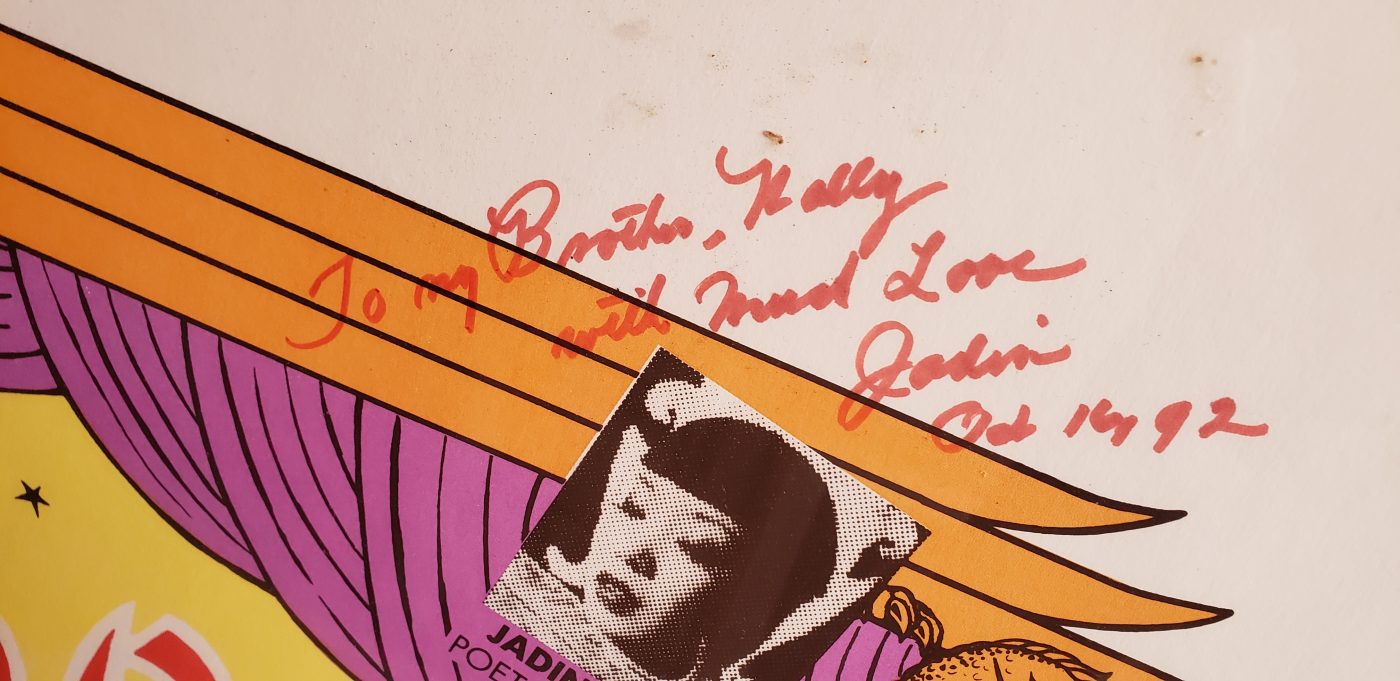 To my Brother, Wally
with Much Love
Jadin
Oct 14, 92
JADIN
POET